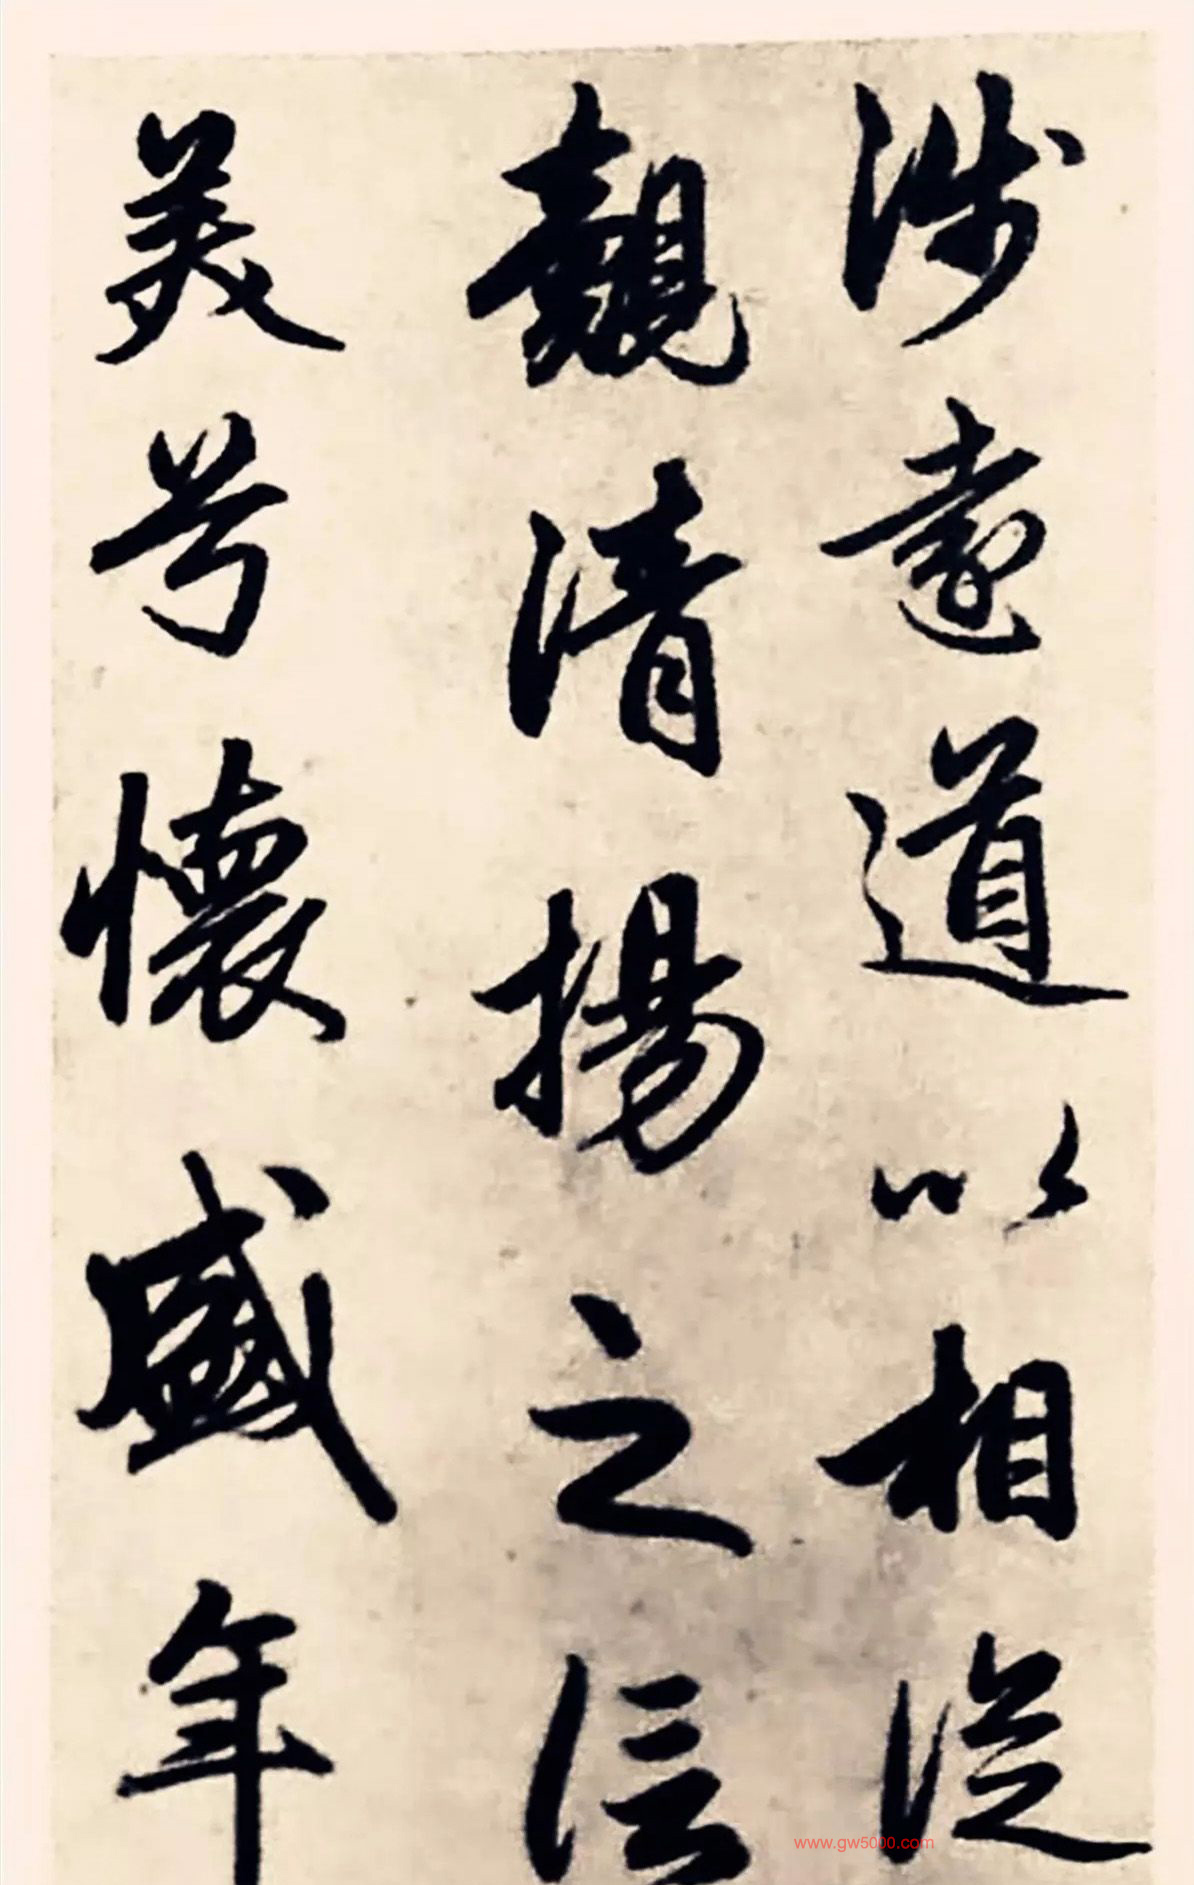 涉遠道以相從
覿清揚之信
美兮懷盛年
www.gw5000.com